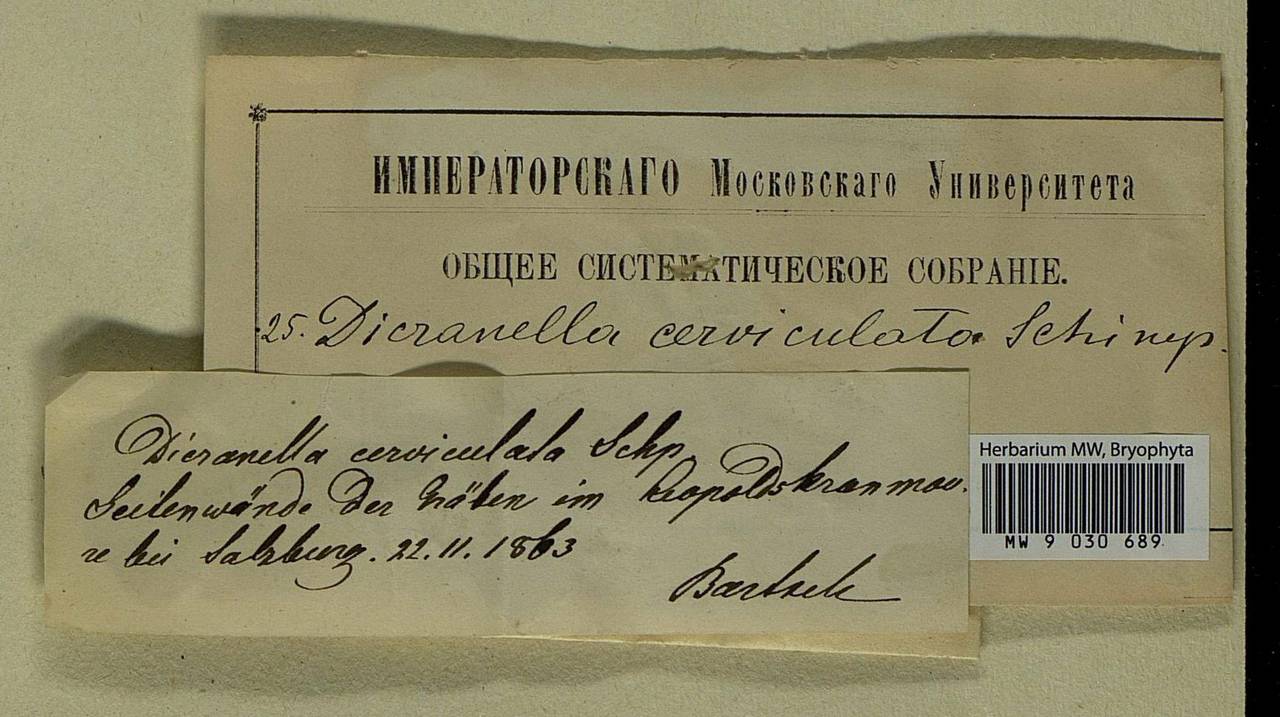 ИМПЕРАТОРСКАГО Московскаго Университета
ОБЩЕЕ СИСТЕМАТИЧЕСКОЕ СОБРАНІЕ.
25. Dicranella cerviculata Schimp.
Dicranella cerviculata Schp.
Seitenwände der Gräben im Leopoldskronmoo-
re bei Salzburg. 22.11.1863
Bartsch
Herbarium MW, Bryophyta
MW 9 030 689